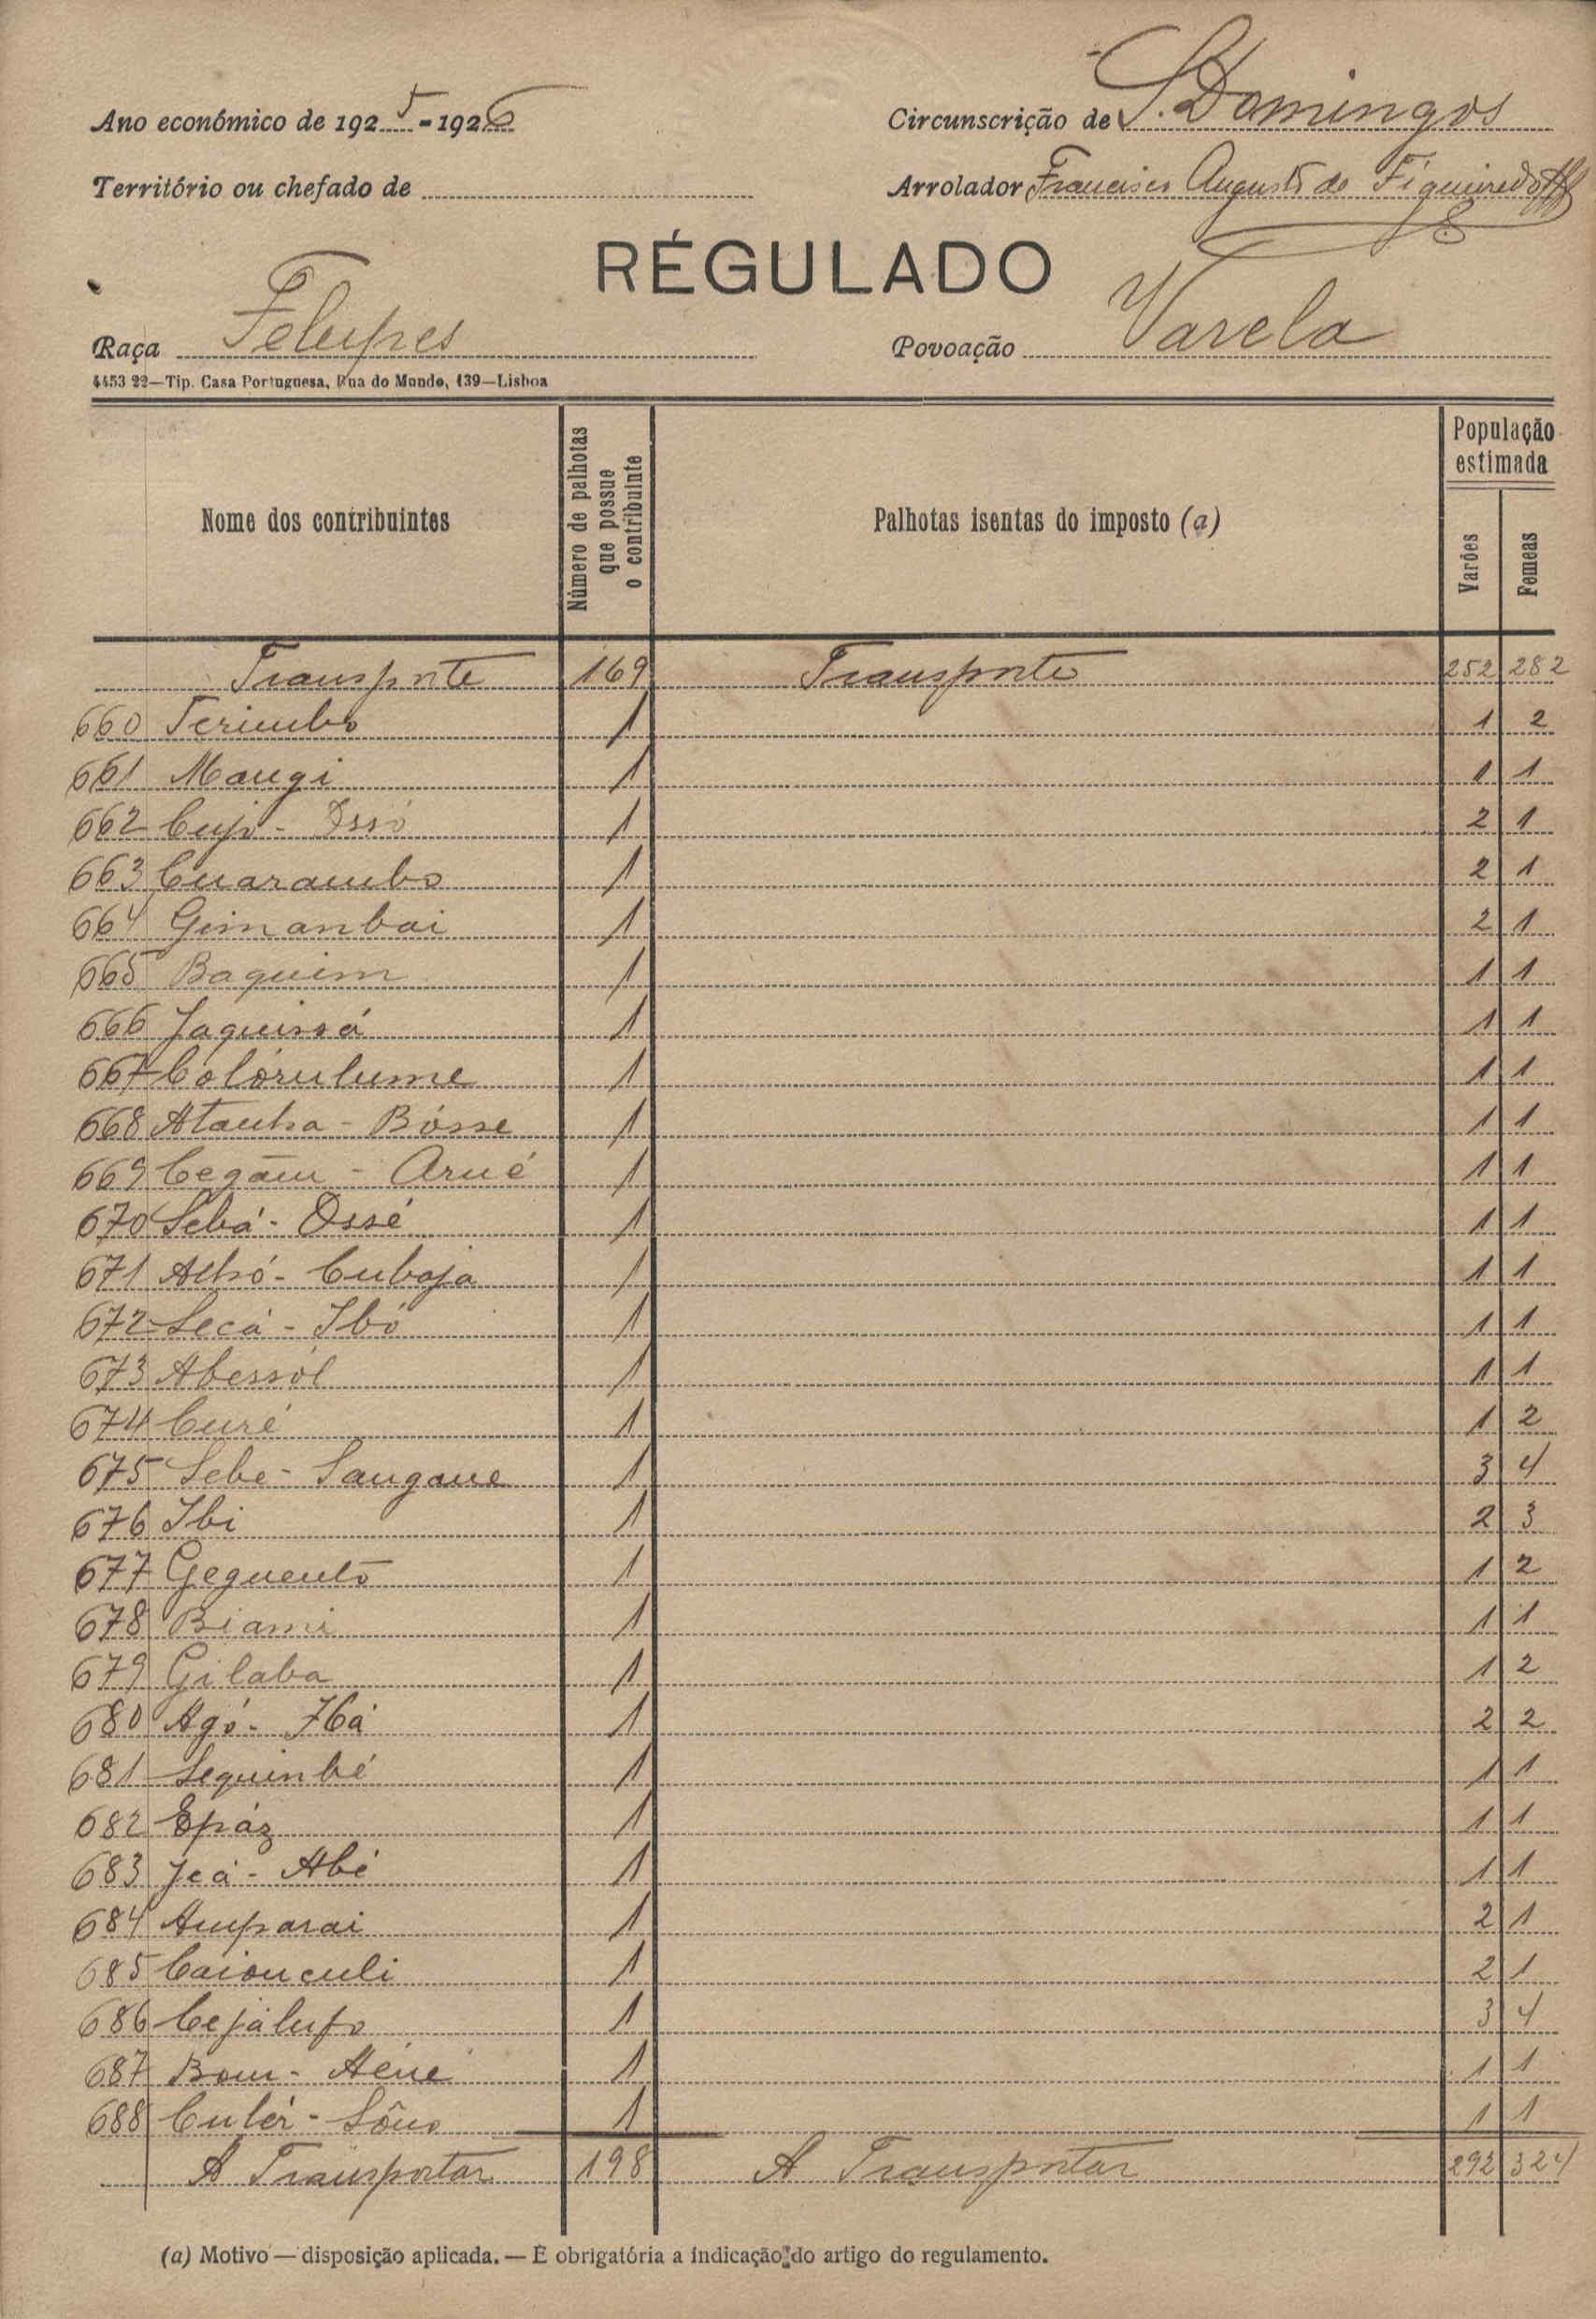 Ano económico de 1925-1926
Circunscrição de S. Domingos
Território ou chefado de
Arrolador Francisco Augusto de Figueiredo
RÉGULADO
Raça Felupes
Povoação Varela
4453 22—Tip. Casa Portuguesa, Rua do Mundo, 139—Lisboa
Nome dos contribuintes
Número de palhotas que possue o contribuinte
Palhotas isentas do imposto (a)
População estimada
Varões
Femeas
Transporte 169 Transporte 252 282
660 Teriumbo 1 1 2
661 Maugi 1 1 1
662 Cujo - Issó 1 2 1
663 Cuarambo 1 2 1
664 Gimanbai 1 2 1
665 Baquim 1 1 1
666 Jaquissá 1 1 1
667 Colórulume 1 1 1
668 Atauha - Bósse 1 1 1
669 Cegãm - Arué 1 1 1
670 Sebá - Ossé 1 1 1
671 Alhó - Cubaja 1 1 1
672 Secá - Ibó 1 1 1
673 Abessól 1 1 1
674 Curé 1 1 2
675 Sebe - Sangane 1 3 4
676 Ibi 1 2 3
677 Gequentó 1 1 2
678 Biami 1 1 1
679 Gilaba 1 1 2
680 Agó - Há 1 2 2
681 Sequinbé 1 1 1
682 Epáz 1 1 1
683 Jeá - Abé 1 1 1
684 Amparai 1 2 1
685 Caiouculi 1 2 1
686 Cejálufo 1 3 4
687 Bom - Aéne 1 1 1
688 Culér - Sôno 1 1 1
A Transportar 198 A Transportar 292 324
(a) Motivo — disposição aplicada. — É obrigatória a indicação do artigo do regulamento.